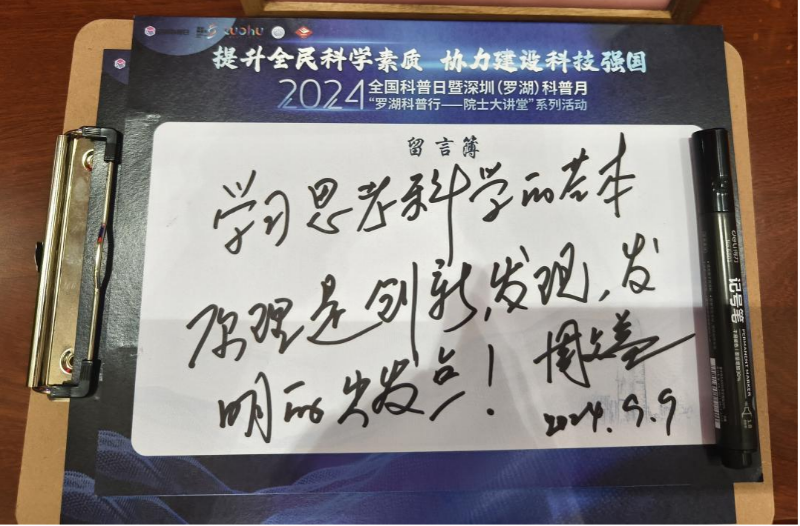 luohu
提升全民科学素质 协力建设科技强国
2024 全国科普日暨深圳(罗湖)科普月
“罗湖科普行——院士大讲堂”系列活动
留言簿
学习思考科学的基本
原理是创新,发现,发
明的出发点!
2024.9.9
记号笔
PERMANENT MARKER